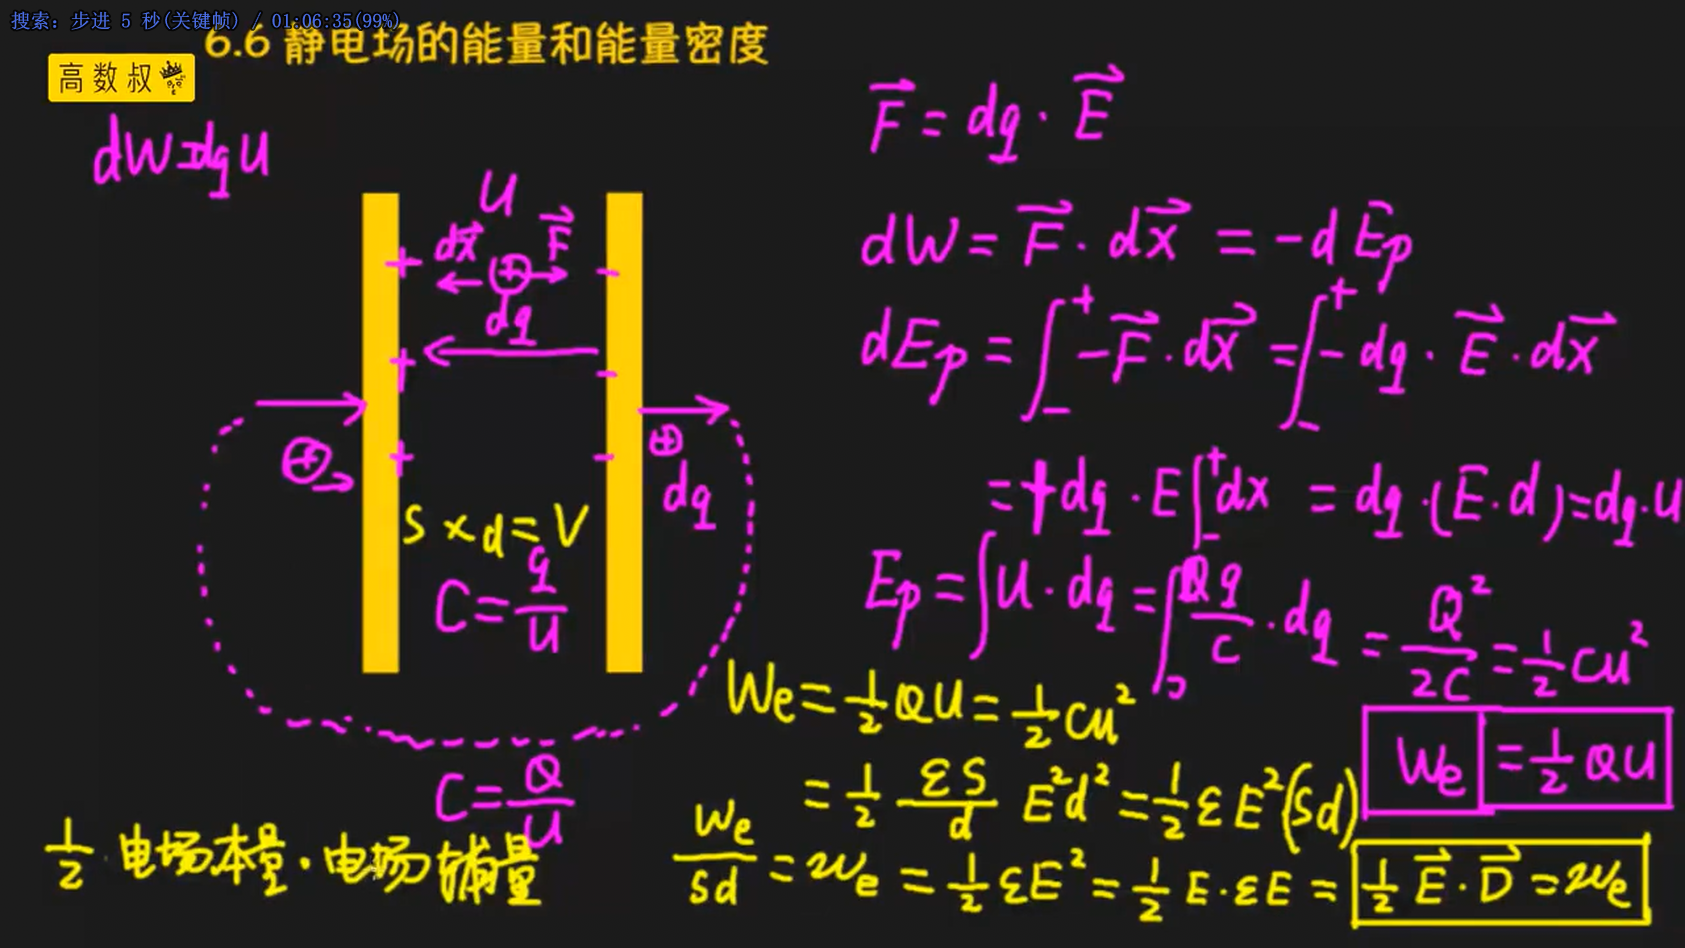 搜索: 步进 5 秒(关键帧) / 01:06:35(99%)
6.6 静电场的能量和能量密度
高数叔
dW=dqU
U
dx⃗ F⃗
+ ⊕ -
dq
+ -
⊕ + - ⊕
dq
S×d=V
C=q/U
C=Q/U
1/2·电场本量·电场辅量
F⃗=dq·E⃗
dW=F⃗·dx⃗=-dEp
dEp=∫₋⁺-F⃗·dx⃗=∫₋⁺-dq·E⃗·dx⃗
=+dq·E∫₋⁺dx=dq·(E·d)=dq·U
Ep=∫U·dq=∫₀Q q/C·dq=Q²/2C=1/2CU²
We=1/2QU=1/2CU²
We=1/2QU
=1/2 εS/d E²d²=1/2εE²(Sd)
We/Sd=we=1/2εE²=1/2E·εE=1/2E⃗·D⃗=we